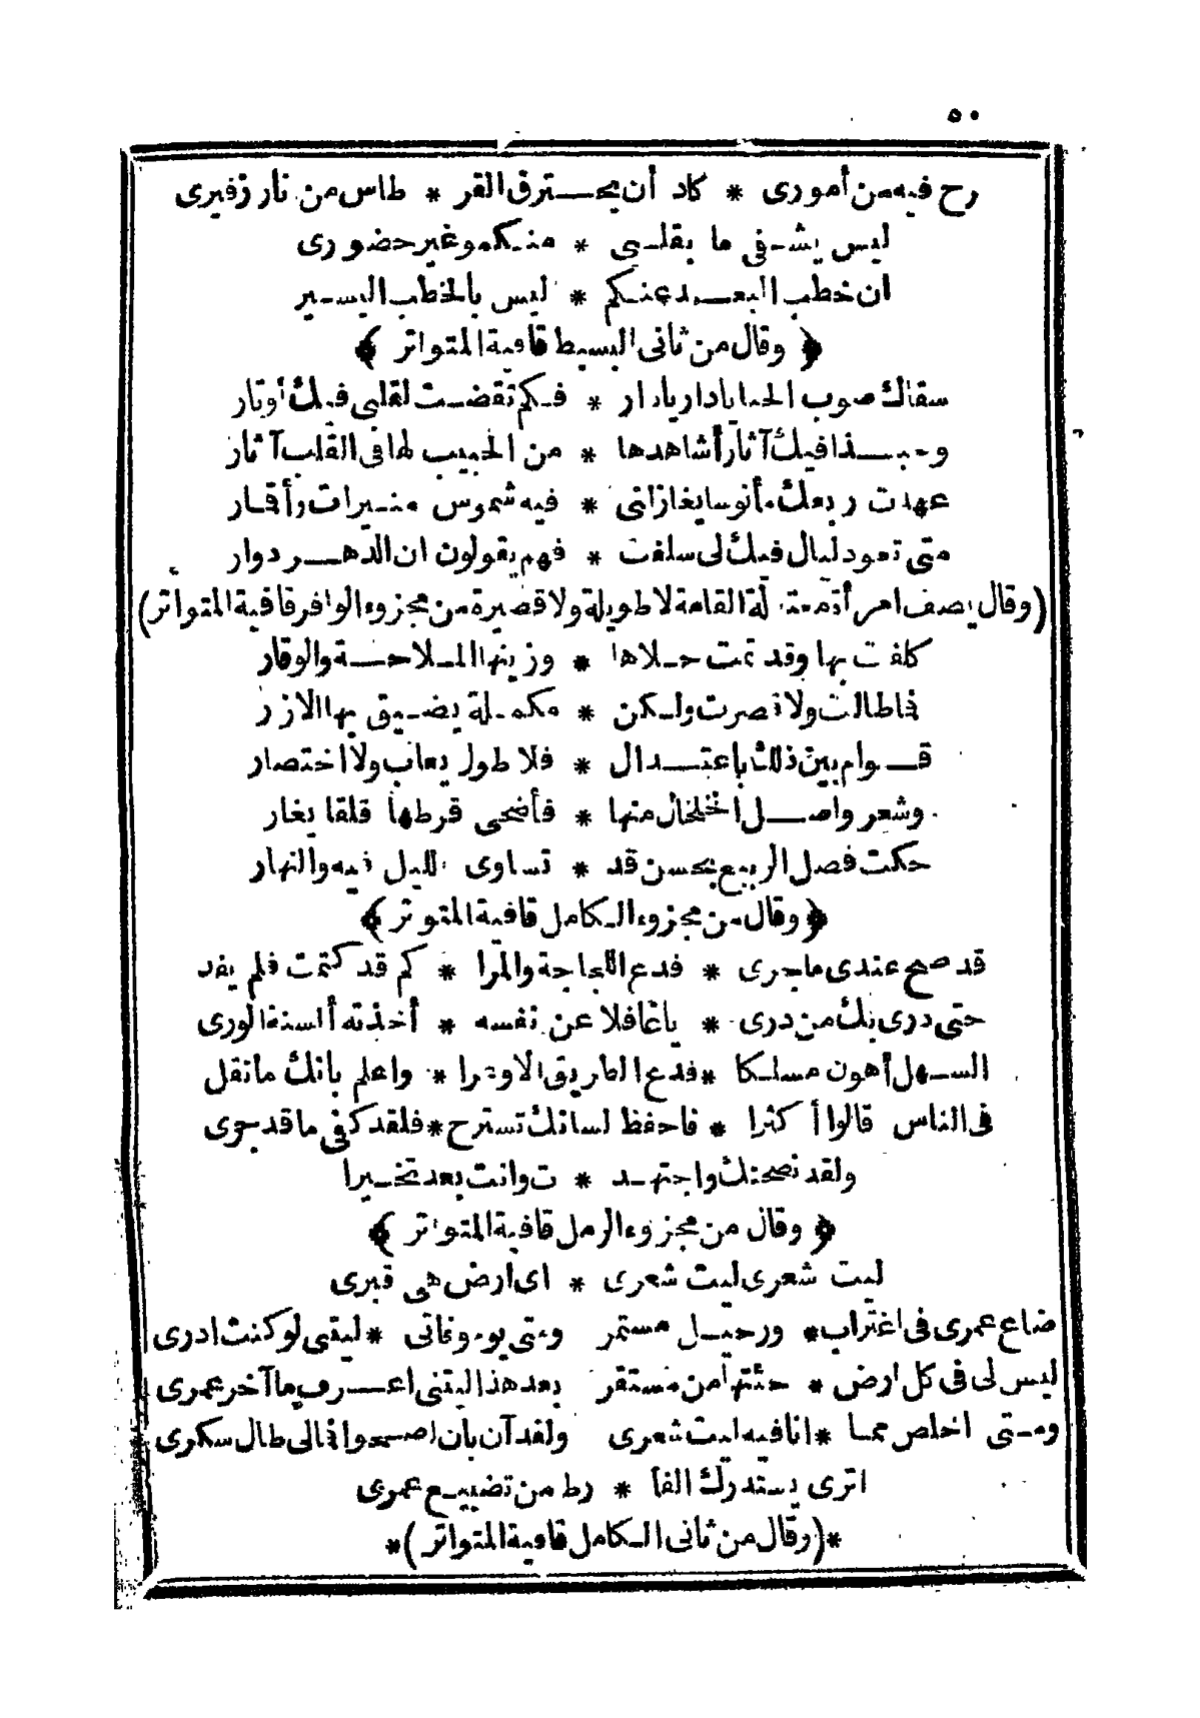 ٥٠
رح فيه من أمورى * كاد أن يحـترق القر * طاس من نار زفيرى
ليس يشـفى ما بقلـبى * منـكمو غير حضورى
ان خطب البعـد عنـكم * ليس بالخطب اليسـير
﴿ وقال من ثانى البسيط قافية المتواتر ﴾
سقاك صوب الحيا يادار يا دار * فـكم تقضـت لقلبى فيك أوتار
وحبـذا فيك آثار أشاهدها * من الحبيب لها فى القلب آثار
عهدت ربعك مأنوسا يغازلنى * فيه شموس منـيرات وأقـار
متى تعود ليال فيك لى سلفت * فهم يقولون ان الدهـر دوار
(وقال يصف امرأة معتدلة القامة لا طويلة ولا قصيرة من مجزوء الوافر قافية المتواتر)
كلفت بها وقد تمت حـلاها * وزينها المـلاحـة والوقار
فما طالت ولا قصرت ولـكن * مكمـلة يضـيق بها الازار
قـوام بين ذلك باعتـدال * فلا طول يعاب ولا اختصار
وشعر واصـل الخلخال منها * فأضحى قرطها قلقا يغار
حكت فصل الربيع بحسن قد * تساوى الليل فيه والنهار
﴿ وقال من مجزوء الـكامل قافية المتواتر ﴾
قد صح عندى ما جرى * فدع اللجاجة والمرا * كم قد كتمت فلم يفد
حتى درى بك من درى * يا غافلا عن نفسه * أخذته ألسنة الورى
السـهل أهون مسلـكا * فدع الطريق الاوعرا * واعلم بانك ما تقل
فى الناس قالوا أكثرا * فاحفظ لسانك تسترح * فلقد كفى ما قد جرى
ولقد نصحتك واجتهـد * ت وانت بعد تخـيرا
﴿ وقال من مجزوء الرمل قافية المتواتر ﴾
ليت شعرى ليت شعرى * اى ارض هى قبرى
ضاع عمرى فى اغتراب * ورحيـل مستمر ومتى يوم وفاتى * ليتنى لو كنت ادرى
ليس لى فى كل ارض * جئتها من مستقر بعد هذا ليتنى اعـرف ما آخر عمرى
ومـتى اخلص ممـا * انا فيه ليت شعرى ولقد آن بان اصحو فمالى طال سكرى
اترى يستدرك الفا * رط من تضييـع عمرى
*(وقال من ثانى الـكامل قافية المتواتر)*